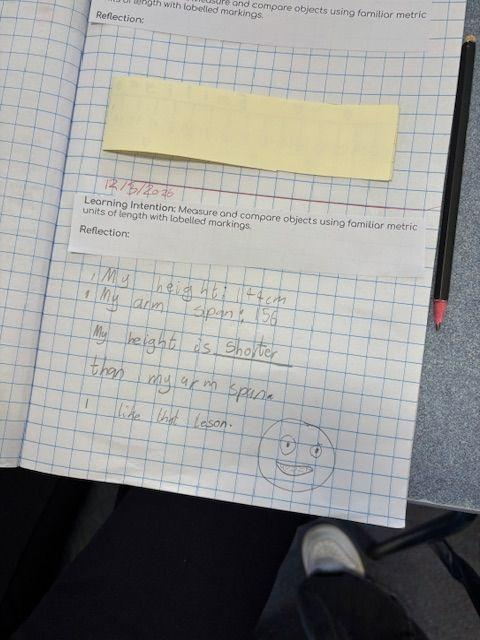 Measure and compare objects using familiar metric
units of length with labelled markings.
Reflection:
12/5/2026
Learning Intention: Measure and compare objects using familiar metric
units of length with labelled markings.
Reflection:
My height: 144cm
My arm span: 156
My height is shorter
than my arm span.
I like that leson.